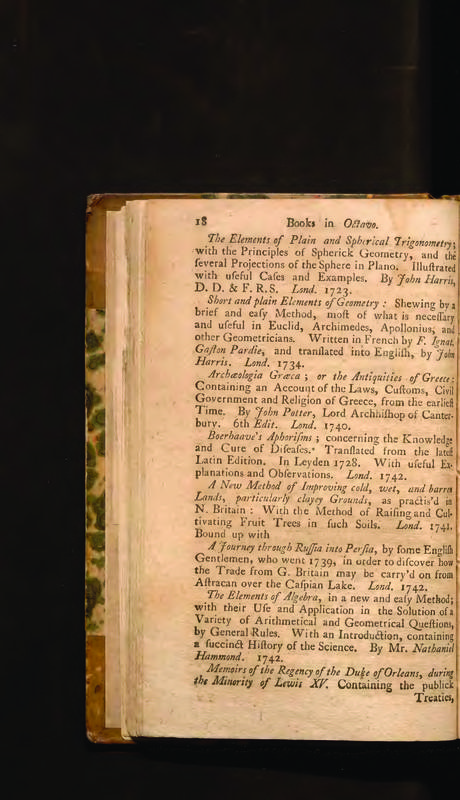 18 Books in Octavo.
The Elements of Plain and Spherical Trigonometry;
with the Principles of Spherick Geometry, and the
ſeveral Projections of the Sphere in Plano. Illuſtrated
with uſeful Caſes and Examples. By John Harris,
D. D. & F. R. S. Lond. 1723.
Short and plain Elements of Geometry : Shewing by a
brief and eaſy Method, moſt of what is neceſſary
and uſeful in Euclid, Archimedes, Apollonius, and
other Geometricians. Written in French by F. Ignat.
Gaſton Pardie, and tranſlated into Engliſh, by John
Harris. Lond. 1734.
Archæologia Græca ; or the Antiquities of Greece:
Containing an Account of the Laws, Cuſtoms, Civil
Government and Religion of Greece, from the earlieſt
Time. By John Potter, Lord Archbiſhop of Canter-
bury. 6th Edit. Lond. 1740.
Boerhaave's Aphoriſms ; concerning the Knowledge
and Cure of Diſeaſes. Tranſlated from the lateſt
Latin Edition. In Leyden 1728. With uſeful Ex-
planations and Obſervations. Lond. 1742.
A New Method of Improving cold, wet, and barren
Lands, particularly clayey Grounds, as practis'd in
N. Britain : With the Method of Raiſing and Cul-
tivating Fruit Trees in ſuch Soils. Lond. 1741.
Bound up with
A Journey through Ruſſia into Perſia, by ſome Engliſh
Gentlemen, who went 1739, in order to diſcover how
the Trade from G. Britain may be carry'd on from
Aſtracan over the Caſpian Lake. Lond. 1742.
The Elements of Algebra, in a new and eaſy Method;
with their Uſe and Application in the Solution of a
Variety of Arithmetical and Geometrical Queſtions,
by General Rules. With an Introduction, containing
a ſuccinct Hiſtory of the Science. By Mr. Nathaniel
Hammond. 1742.
Memoirs of the Regency of the Duke of Orleans, during
the Minority of Lewis XV. Containing the publick
Treaties,